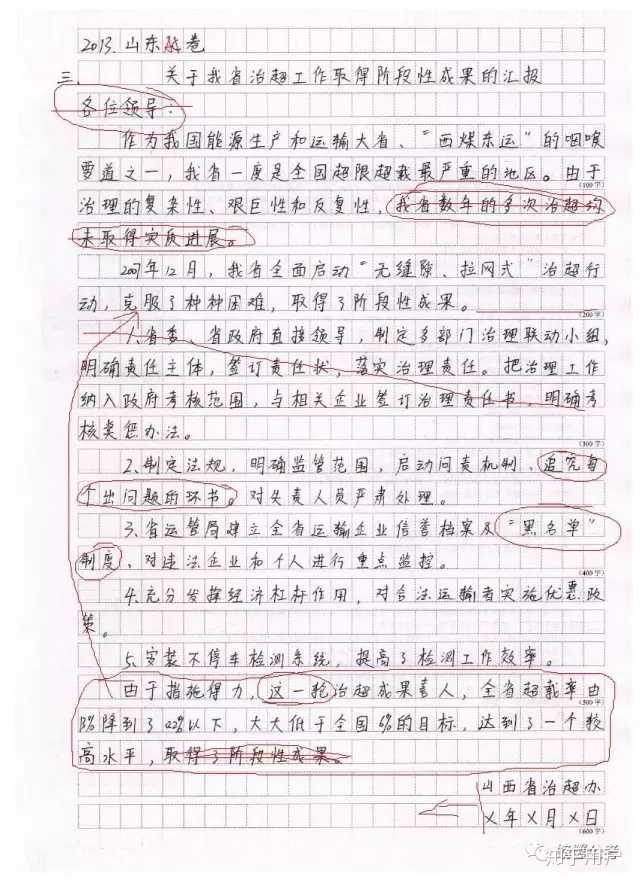 2013.山东B卷
三、
关于我省治超工作取得阶段性成果的汇报
各位领导：
作为我国能源生产和运输大省、“西煤东运”的咽喉
要道之一，我省一度是全国超限超载最严重的地区。由于
(100字)
治理的复杂性、艰巨性和反复性，我省数年的多次治超均
未取得实质进展。
2007年12月，我省全面启动“无缝隙、拉网式”治超行
动，克服了种种困难，取得了阶段性成果。
(200字)
1.省委、省政府直接领导，制定多部门治理联动小组，
明确责任主体，签订责任状，落实治理责任。把治理工作
纳入政府考核范围，与相关企业签订治理责任书，明确考
核奖惩办法。
(300字)
2.制定法规，明确监管范围，启动问责机制、追究每
个出问题的环节。对失责人员严肃处理。
3.省运管局建立全省运输企业信誉档案及“黑名单”
制度、对违法企业和个人进行重点监控。
(400字)
4.充分发挥经济杠杆作用，对合法运输者实施优惠政
策。
5.安装不停车检测系统，提高了检测工作效率。
由于措施得力，这一轮治超成果喜人，全省超载率由
(500字)
降到了以下，大大低于全国6%的目标，达到了一个较
高水平，取得了阶段性成果。
山西省治超办
X年X月X日
(600字)
知乎用户